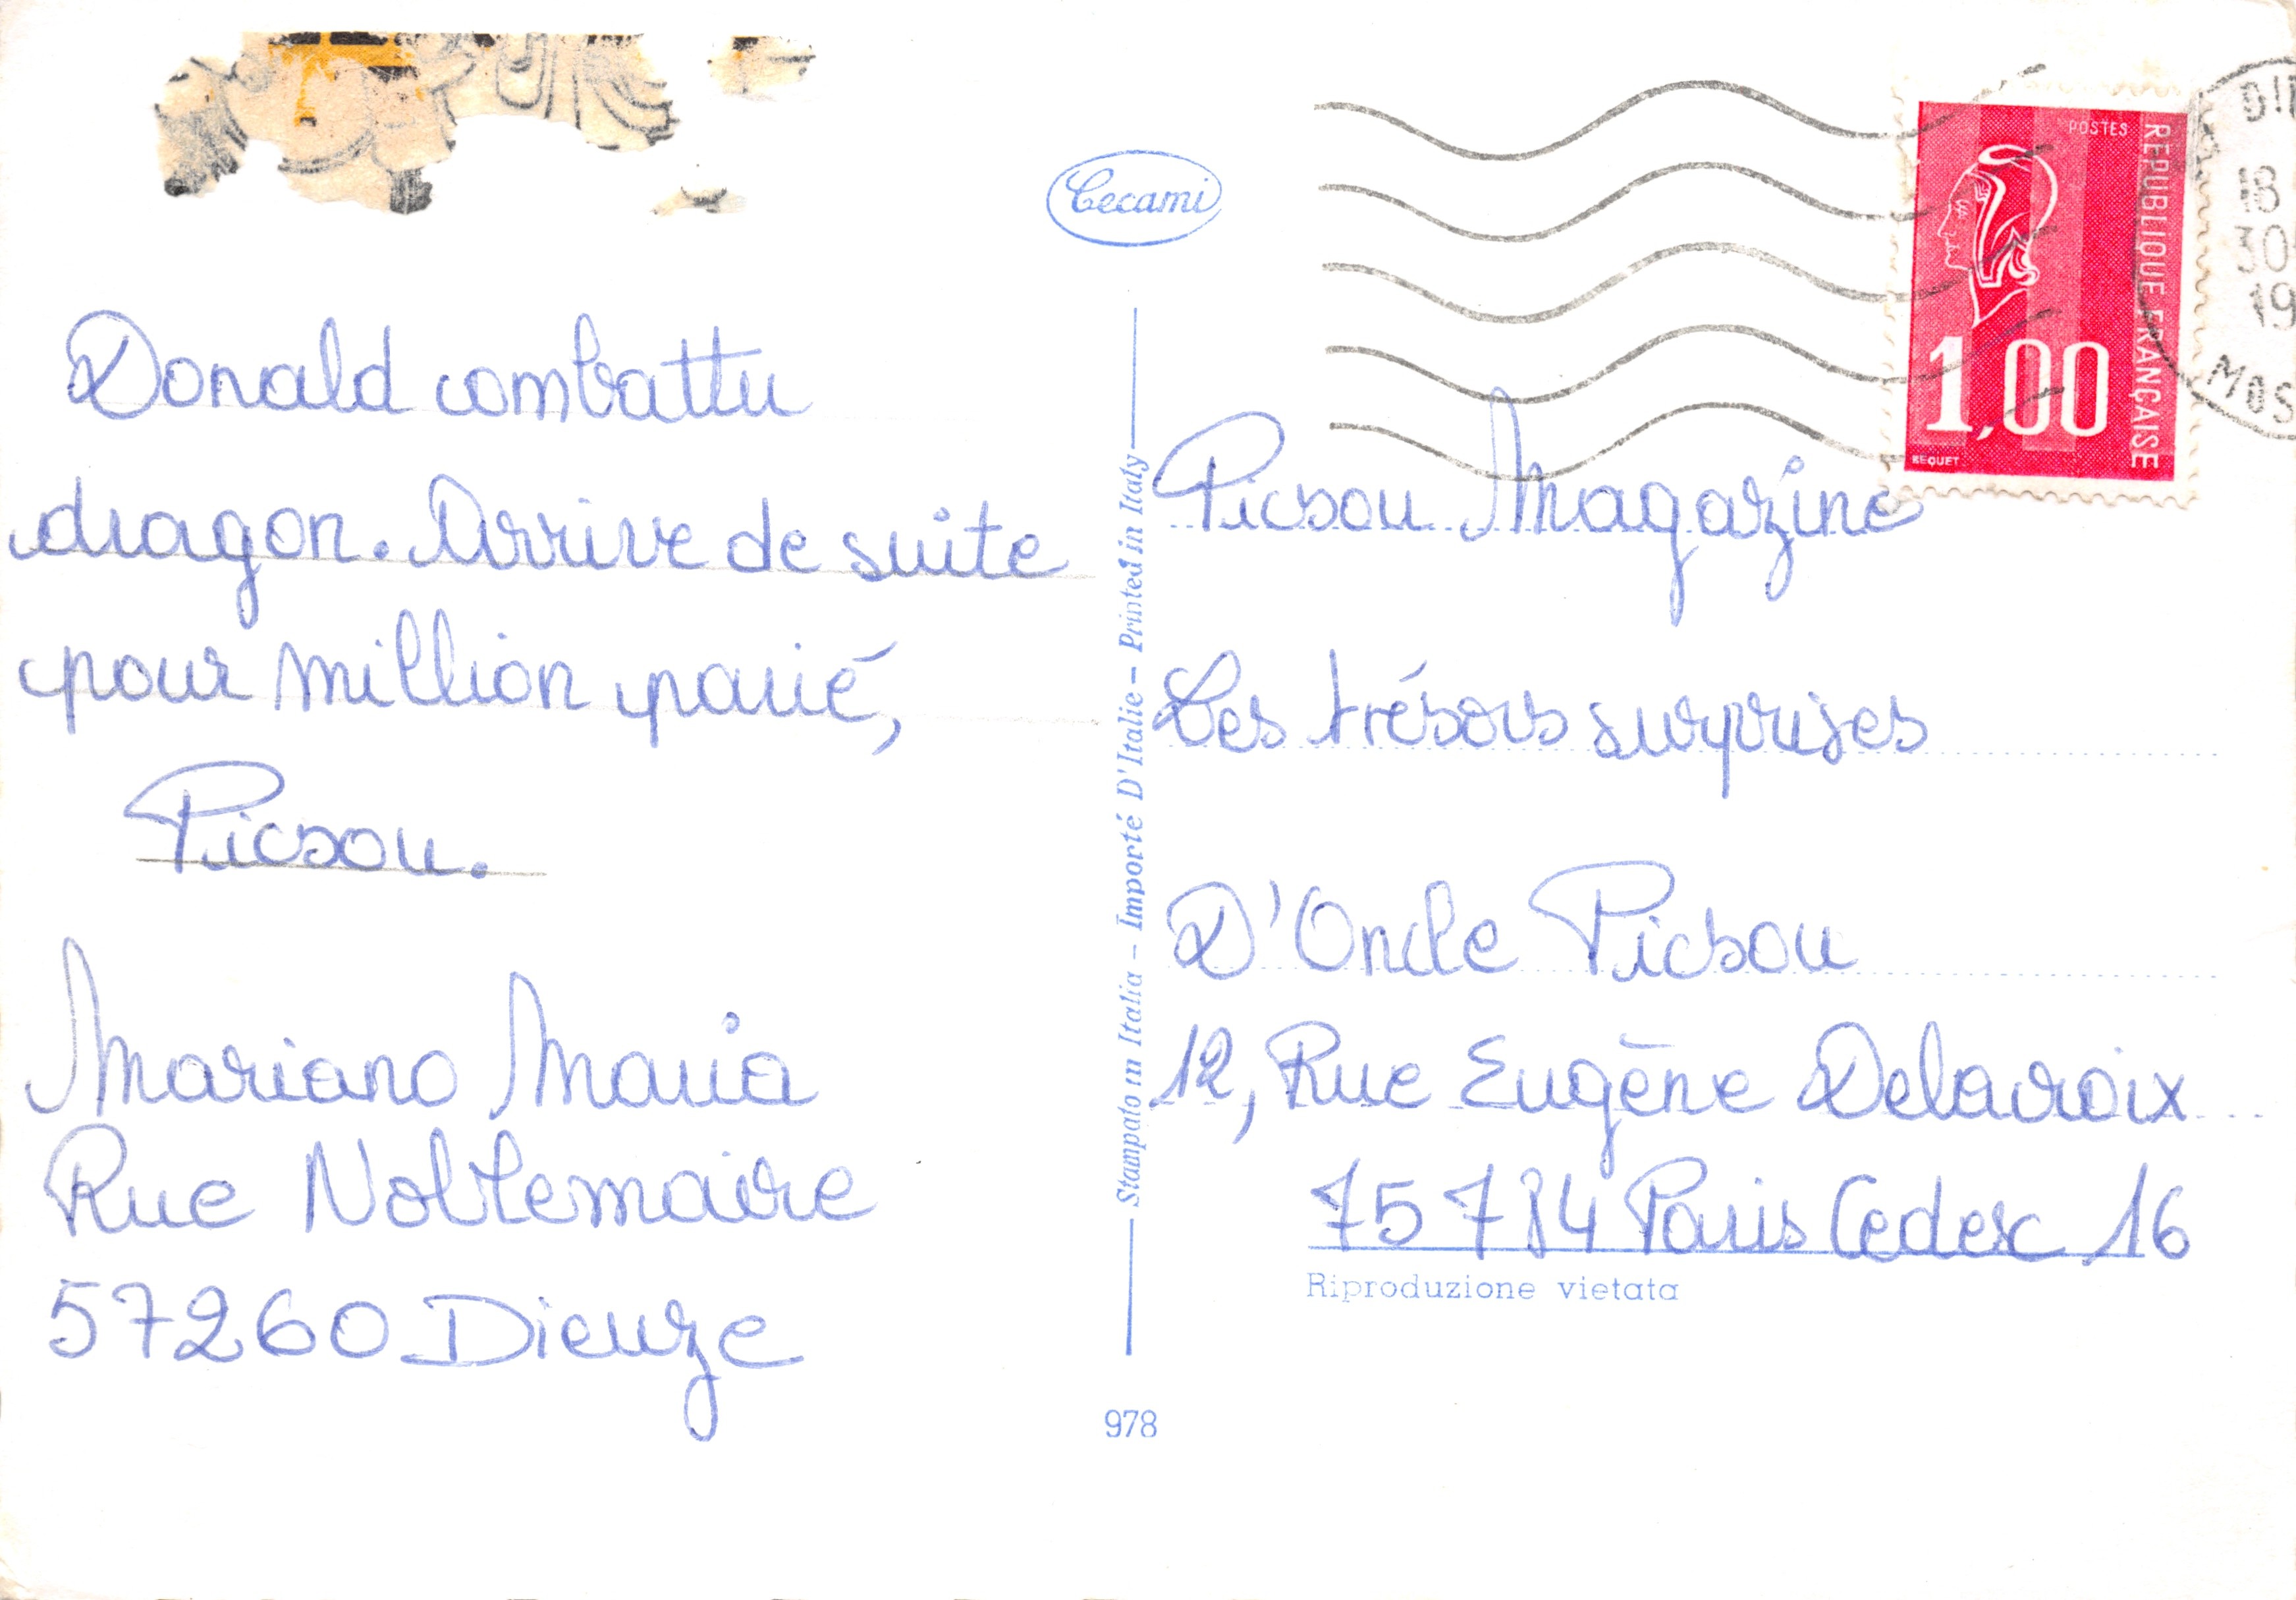 Cecami
Donald combattu
dragon. Arrive de suite
pour million parié,
Picsou.
Mariano Maria
Rue Noblemaire
57260 Dieuze
Stampato in Italia – Importé D'Italie – Printed in Italy
978
POSTES
REPUBLIQUE FRANÇAISE
1,00
BEQUET
18
30
19
MOS
Picsou Magazine
Les trésors surprises
D'Oncle Picsou
12, Rue Eugène Delacroix
75 784 Paris Cedex 16
Riproduzione vietata